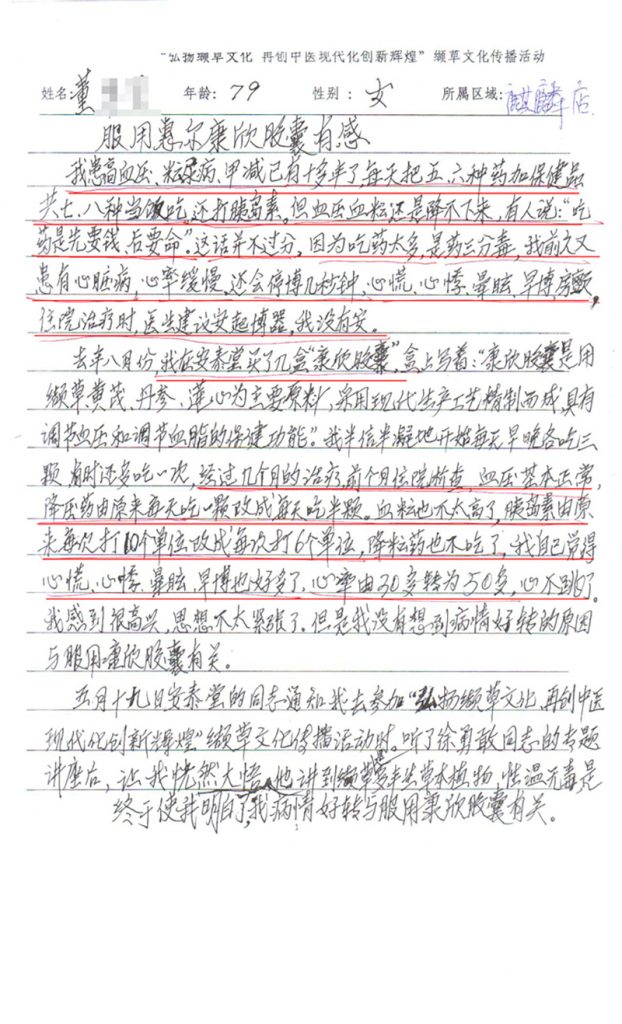 “弘扬缬草文化 再创中医现代化创新辉煌”缬草文化传播活动
姓名:董 年龄:79 性别:女 所属区域:麒麟店
服用惠尔康欣胶囊有感
我患高血压、粘尿病、甲减已有十多年了,每天把五、六种药加保健品
共七、八种当饭吃,还打胰岛素。但血压血粘还是降不下来,有人说:“吃
药是先要钱、后要命”。这话并不过分,因为吃药太多,是药三分毒,我前又又
患有心脏病,心率缓慢,还会停博几秒钟,心慌、心悸、晕眩、早博、房颤,
住院治疗时,医生建议安起博器,我没有安。
去年八月份,我在安泰堂买了几盒“康欣胶囊”,盒上写着:“康欣胶囊是用
缬草黄茂、丹参、莲心为主要原料,采用现代生产工艺精制而成,具有
调节血压和调节血脂的保健功能”。我半信半凝地开始每天早晚各吃三
颗,有时还多吃一次,经过几个月的治疗,前个月住院检查,血压基本正常,
降压药由原来每天吃一颗改成每天吃半颗。血粘也不太高了,胰岛素由原
来每次打10个单位改成每次打6个单位,降粘药也不吃了,我自己觉得
心慌、心悸、晕眩、早博也好多了,心率由30多转为50多,心不跳了。
我感到很高兴,思想不太紧张了。但是我没有想到病情好转的原因
与服用康欣胶囊有关。
五月十九日安泰堂的同志通知我去参加“弘扬缬草文化,再创中医
现代化创新辉煌”缬草文化传播活动时。听了徐勇敢同志的专题
讲座后,让我恍然大悟,他讲到缬草是多年生草本植物,性温无毒,是
终于使我明白了,我病情好转与服用康欣胶囊有关。